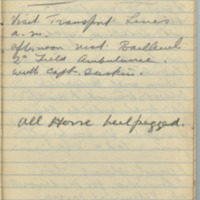 Visit Transport Lines
a.m.
afternoon visit Bailleul
2nd Field Ambulance.
with Capt.
All Horse